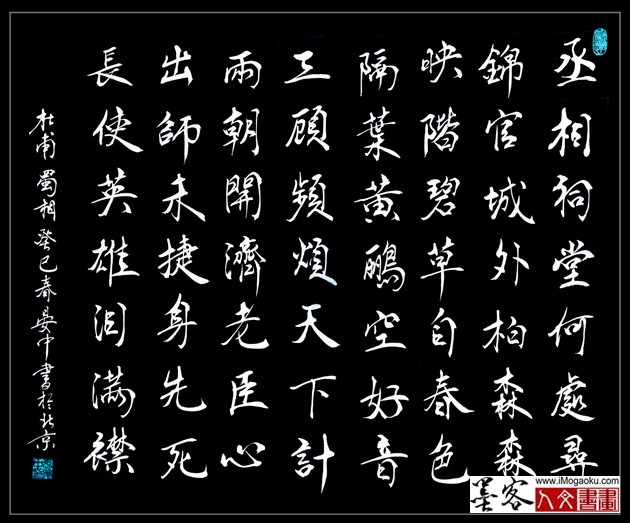 丞相祠堂何處尋
錦官城外柏森森
映階碧草自春色
隔葉黄鸝空好音
三顧頻煩天下計
兩朝開濟老臣心
出師未捷身先死
長使英雄泪滿襟
杜甫蜀相癸巳春晏中書於北京
墨客
www.iMogaoku.com
人文書畫